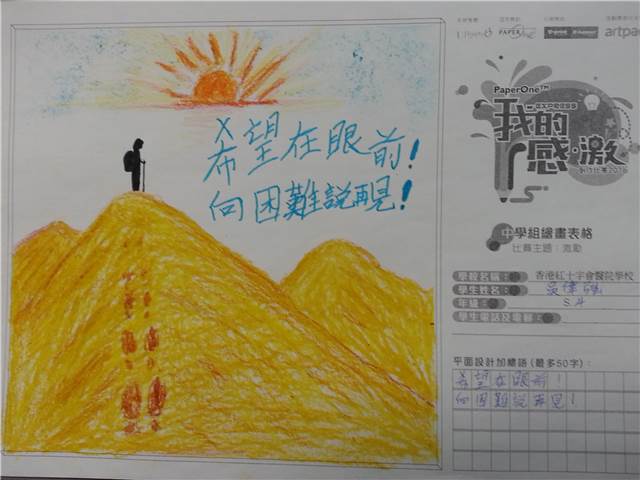 希望在眼前!
向困難說再見!
PAPER
artpa
PaperOne™
我的
感·激
中學組繪畫表格
比賽主題:激勵
學校名稱: 香港紅十字會醫院學校
學生姓名:
年級: S4
學生電話及電郵:
平面設計加標語(最多50字):
希望在眼前!
向困難說再見!